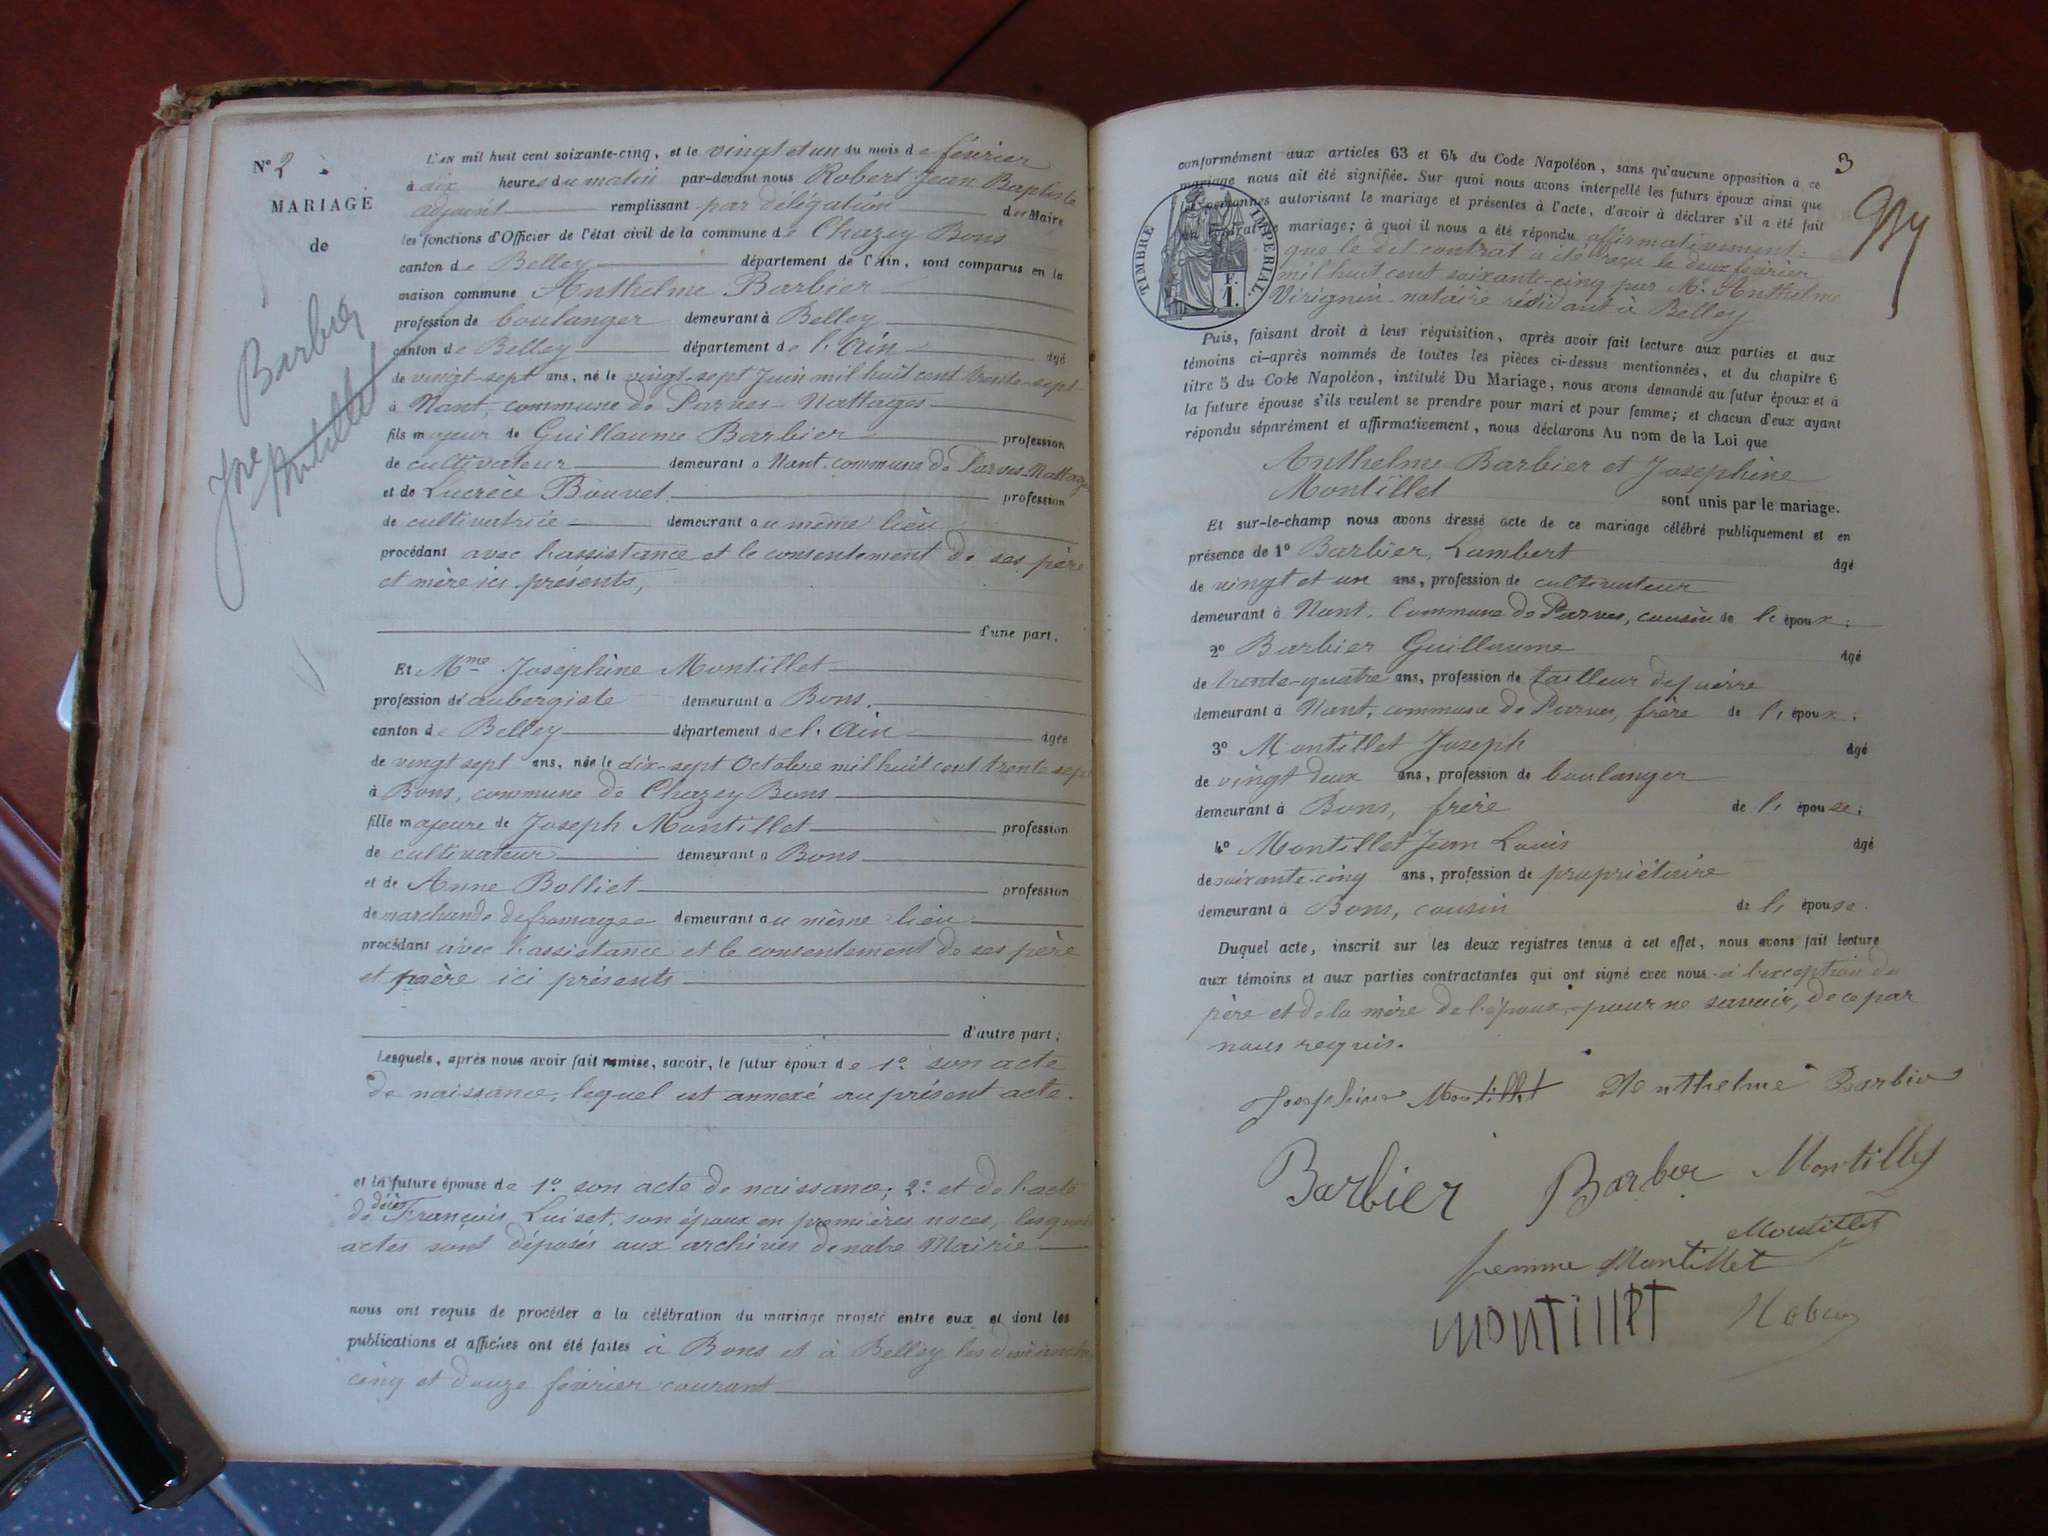 N° 2
MARIAGE
de
Barbier
Jne Montillet
L'AN mil huit cent soixante-cinq, et le vingt et un du mois de février
à dix heures du matin par-devant nous Robert Jean Baptiste
adjoint remplissant par délégation du Maire
les fonctions d'Officier de l'état civil de la commune de Chazey Bons
canton de Belley département de l'Ain, sont comparus en la
maison commune Anthelme Barbier
profession de boulanger demeurant à Belley
canton de Belley département de l'Ain âgé
de vingt-sept ans, né le vingt-sept Juin mil huit cent trente-sept
à Nant, commune de Parves-Nattages
fils majeur de Guillaume Barbier profession
de cultivateur demeurant à Nant commune de Parves-Nattages
et de Lucrèce Bouvet profession
de cultivatrice demeurant au même lieu
procédant avec l'assistance et le consentement de ses père
et mère ici présents,
d'une part,
Et Mme Joséphine Montillet
profession d'aubergiste demeurant à Bons.
canton de Belley département de l'Ain âgée
de vingt sept ans, née le dix-sept Octobre mil huit cent trente sept
à Bons, commune de Chazey Bons
fille majeure de Joseph Montillet profession
de cultivateur demeurant à Bons
et de Anne Bolliet profession
de marchande de fromages demeurant au même lieu
procédant avec l'assistance et le consentement de ses père
et mère ici présents
d'autre part;
Lesquels, après nous avoir fait remise, savoir, le futur époux de 1° son acte
de naissance, lequel est annexé au présent acte.
et la future épouse de 1° son acte de naissance; 2° et de l'acte
de décès François Luiset, son époux en premières noces, lesquels
actes sont déposés aux archives de notre Mairie
nous ont requis de procéder à la célébration du mariage projeté entre eux et dont les
publications et affiches ont été faites à Bons et à Belley les dimanches
cinq et douze février courant
3
conformément aux articles 63 et 64 du Code Napoléon, sans qu'aucune opposition à ce
mariage nous ait été signifiée. Sur quoi nous avons interpellé les futurs époux ainsi que
personnes autorisant le mariage et présentes à l'acte, d'avoir à déclarer s'il a été fait
mariage; à quoi il nous a été répondu affirmativement:
que le dit contrat a été reçu le deux février
mil huit cent soixante-cinq par Me Anthelme
Virignin notaire résidant à Belley
TIMBRE IMPERIAL.
F.
1.
Puis, faisant droit à leur réquisition, après avoir fait lecture aux parties et aux
témoins ci-après nommés de toutes les pièces ci-dessus mentionnées, et du chapitre 6
titre 5 du Code Napoléon, intitulé Du Mariage, nous avons demandé au futur époux et à
la future épouse s'ils veulent se prendre pour mari et pour femme; et chacun d'eux ayant
répondu séparément et affirmativement, nous déclarons Au nom de la Loi que
Anthelme Barbier et Joséphine
Montillet sont unis par le mariage.
Et sur-le-champ nous avons dressé acte de ce mariage célébré publiquement et en
présence de 1° Barbier, Lambert âgé
de vingt et un ans, profession de cultivateur
demeurant à Nant. Commune de Parves, cousin de l'époux;
2° Barbier Guillaume âgé
de trente-quatre ans, profession de tailleur de pierre
demeurant à Nant, commune de Parves, frère de l'époux;
3° Montillet Joseph âgé
de vingt deux ans, profession de boulanger
demeurant à Bons, frère de l'épouse;
4° Montillet Jean Louis âgé
de soixante-cinq ans, profession de propriétaire
demeurant à Bons, cousin de l'épouse.
Duquel acte, inscrit sur les deux registres tenus à cet effet, nous avons fait lecture
aux témoins et aux parties contractantes qui ont signé avec nous à l'exception du
père et de la mère de l'époux, pour ne savoir, de ce par
nous requis.
Josephine Montillet Anthelme Barbier
Barbier Barbier Montillet
Montillet
femme Montillet
MONTILLET